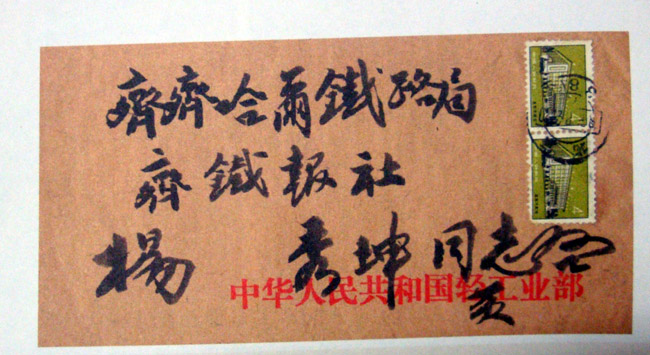 齊齊哈爾鐵路局
齊鐵報社
楊秀坤同志
中华人民共和国轻工业部
4
4